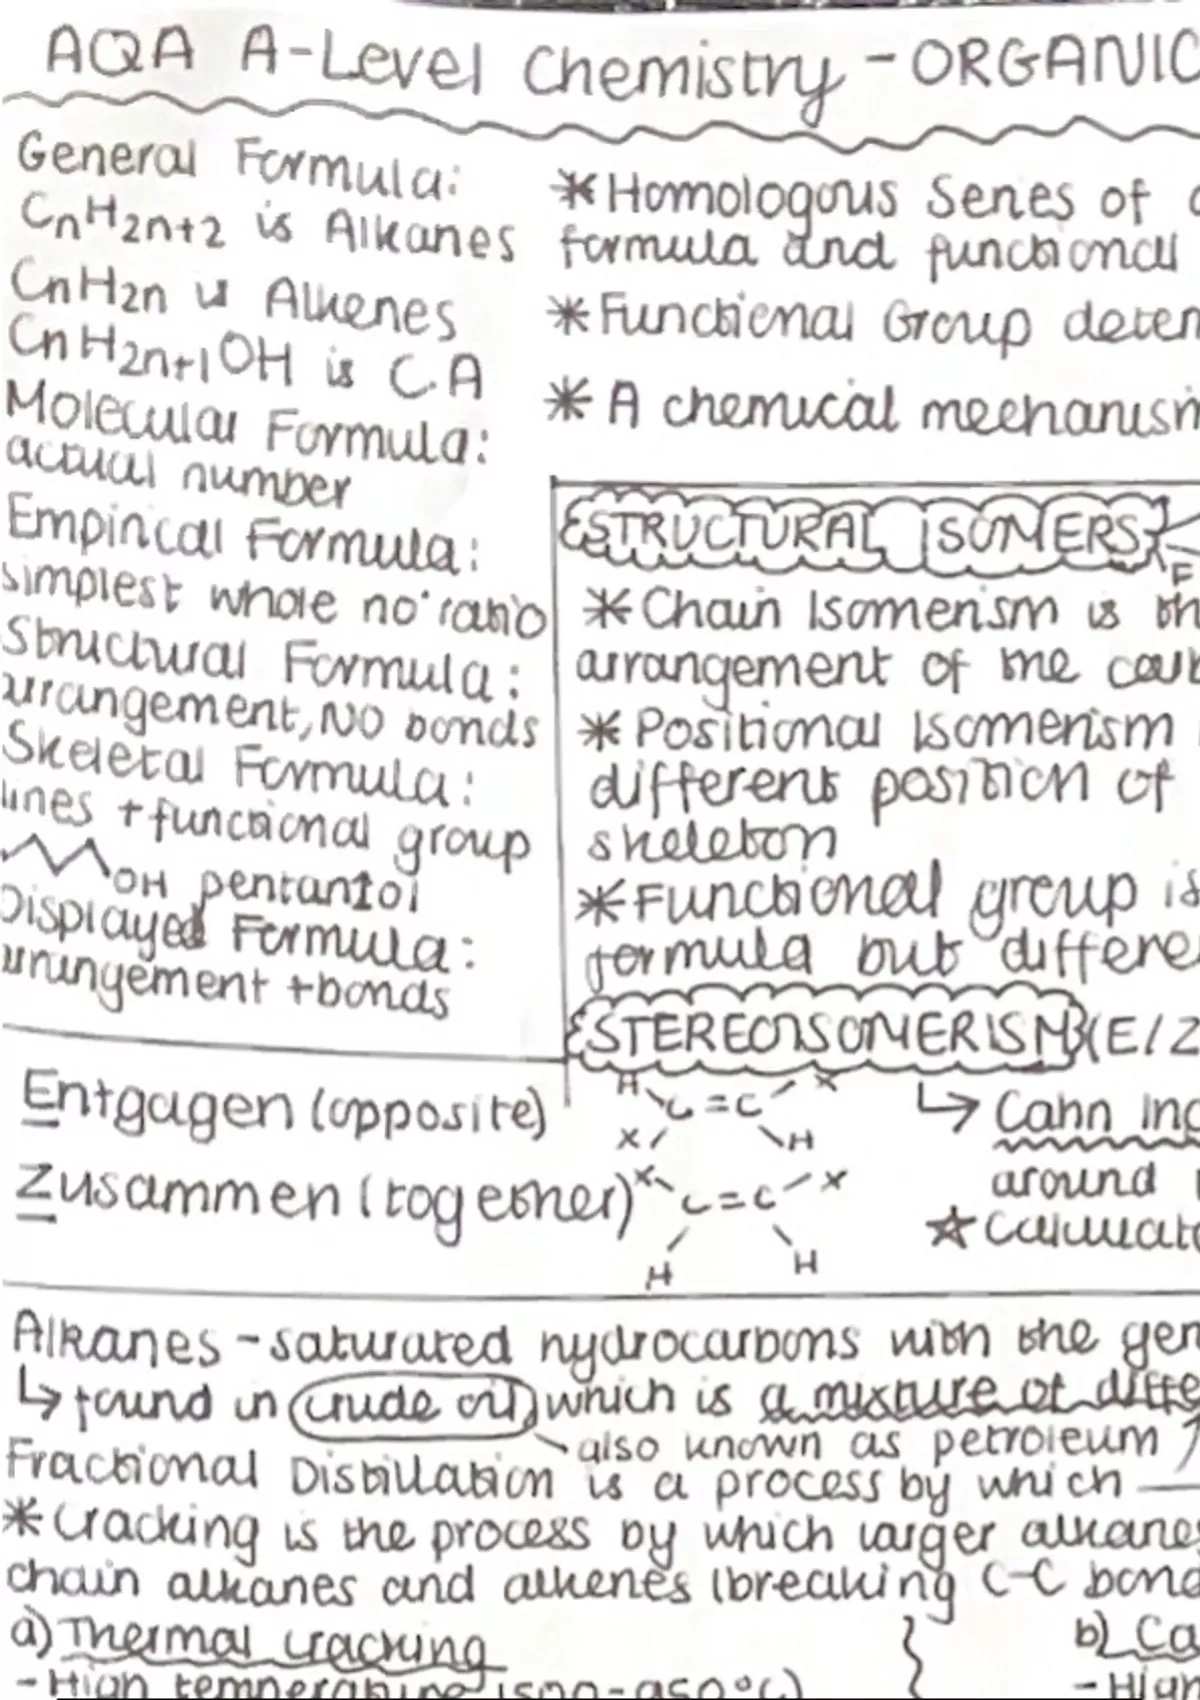 AQA A-Level Chemistry - ORGANIC
General Formula:
CnH2n+2 is Alkanes
CnH2n is Alkenes
CnH2n+1OH is C.A
Molecular Formula:
actual number
Empirical Formula:
simplest whole no. ratio
Structural Formula:
arrangement, NO bonds
Skeletal Formula:
lines + functional group
OH pentan1ol
Displayed Formula:
arrangement + bonds
* Homologous Series of
formula and functional
* Functional Group deter
* A chemical mechanism
STRUCTURAL ISOMERS
F
* Chain Isomerism is th
arrangement of the carb
* Positional Isomerism
different position of
skeleton
* Functional group is
formula but differe
STEREOISOMERISM (E/Z
Entgagen (opposite)
H X
C=C
X H
Zusammen (together)
X X
C=C
H H
↳ Cahn Ing
around
☆ Calculate
Alkanes - saturated hydrocarbons with the gen
↳ found in crude oil which is a mixture of diffe
also known as petroleum
Fractional Distillation is a process by which
* Cracking is the process by which larger alkanes
chain alkanes and alkenes (breaking C-C bond
a) Thermal cracking
- High temperature
b) Ca
- High